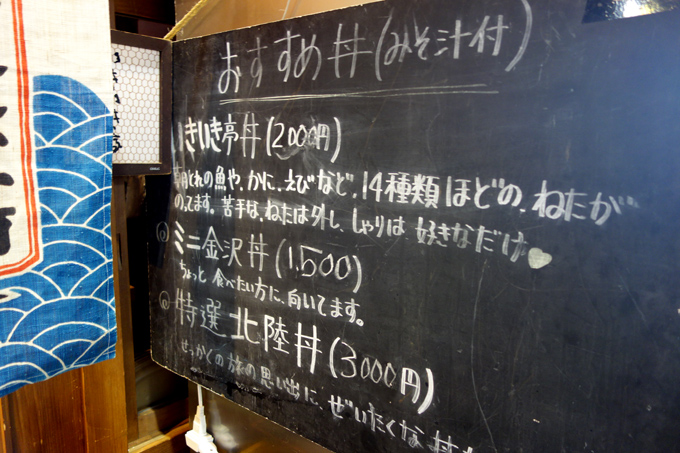 おすすめ丼(みそ汁付)
いきいき亭丼(2000円)
朝とれの魚や、かに、えびなど、14種類ほどの、ねたが
のってます。苦手な、ねたは外し、しゃりは 好きなだけ♥
ミニ金沢丼(1,500)
ちょっと 食べたい方に、向いてます。
特選 北陸丼(3000円)
せっかくの旅の思い出に、ぜいたくな丼